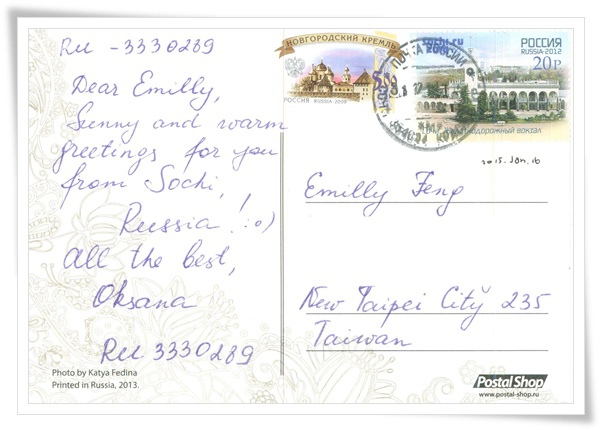 RU - 3330289
Dear Emilly,
Sunny and warm
greetings for you
from Sochi,
Russia! :o)
All the best,
Oksana
RU 3330289
Photo by Katya Fedina
Printed in Russia, 2013.
НОВГОРОДСКИЙ КРЕМЛЬ
РОССИЯ RUSSIA 2009
sochi.ru
ПОЧТА РОССИИ
РОССИЯ
RUSSIA·2012
20Р
ЖЕЛЕЗНОДОРОЖНЫЙ ВОКЗАЛ
2015. Jan. 16
Emilly Feng
New Taipei City 235
Taiwan
Postal Shop
www.postal-shop.ru